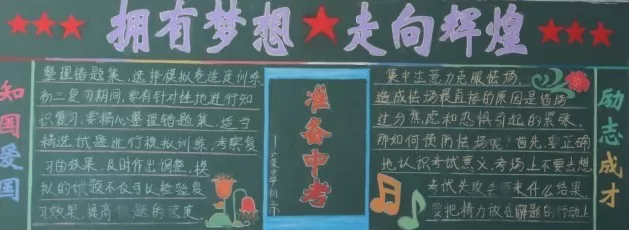 拥有梦想 走向辉煌
知国爱国
整理错题集,选择模拟卷适度训练.
初三复习期间,要有针对性地进行知
识复习,要精心整理错题集,适当
精选试题进行模拟训练,考察复
习的效果,及时作出调整,模
拟的试题不仅可以检验复
习效果,提高 题的速度.
准备中考
集中注意力克服怯场.
造成怯场最直接的原因是临场
过分焦虑和恐惧引起的紧张.
那如何预防怯场呢?首先,要正确
地认识考试意义,考场上不要去想
考试失败 来什么结果,
要把精力放在解题的行动上
励志成才